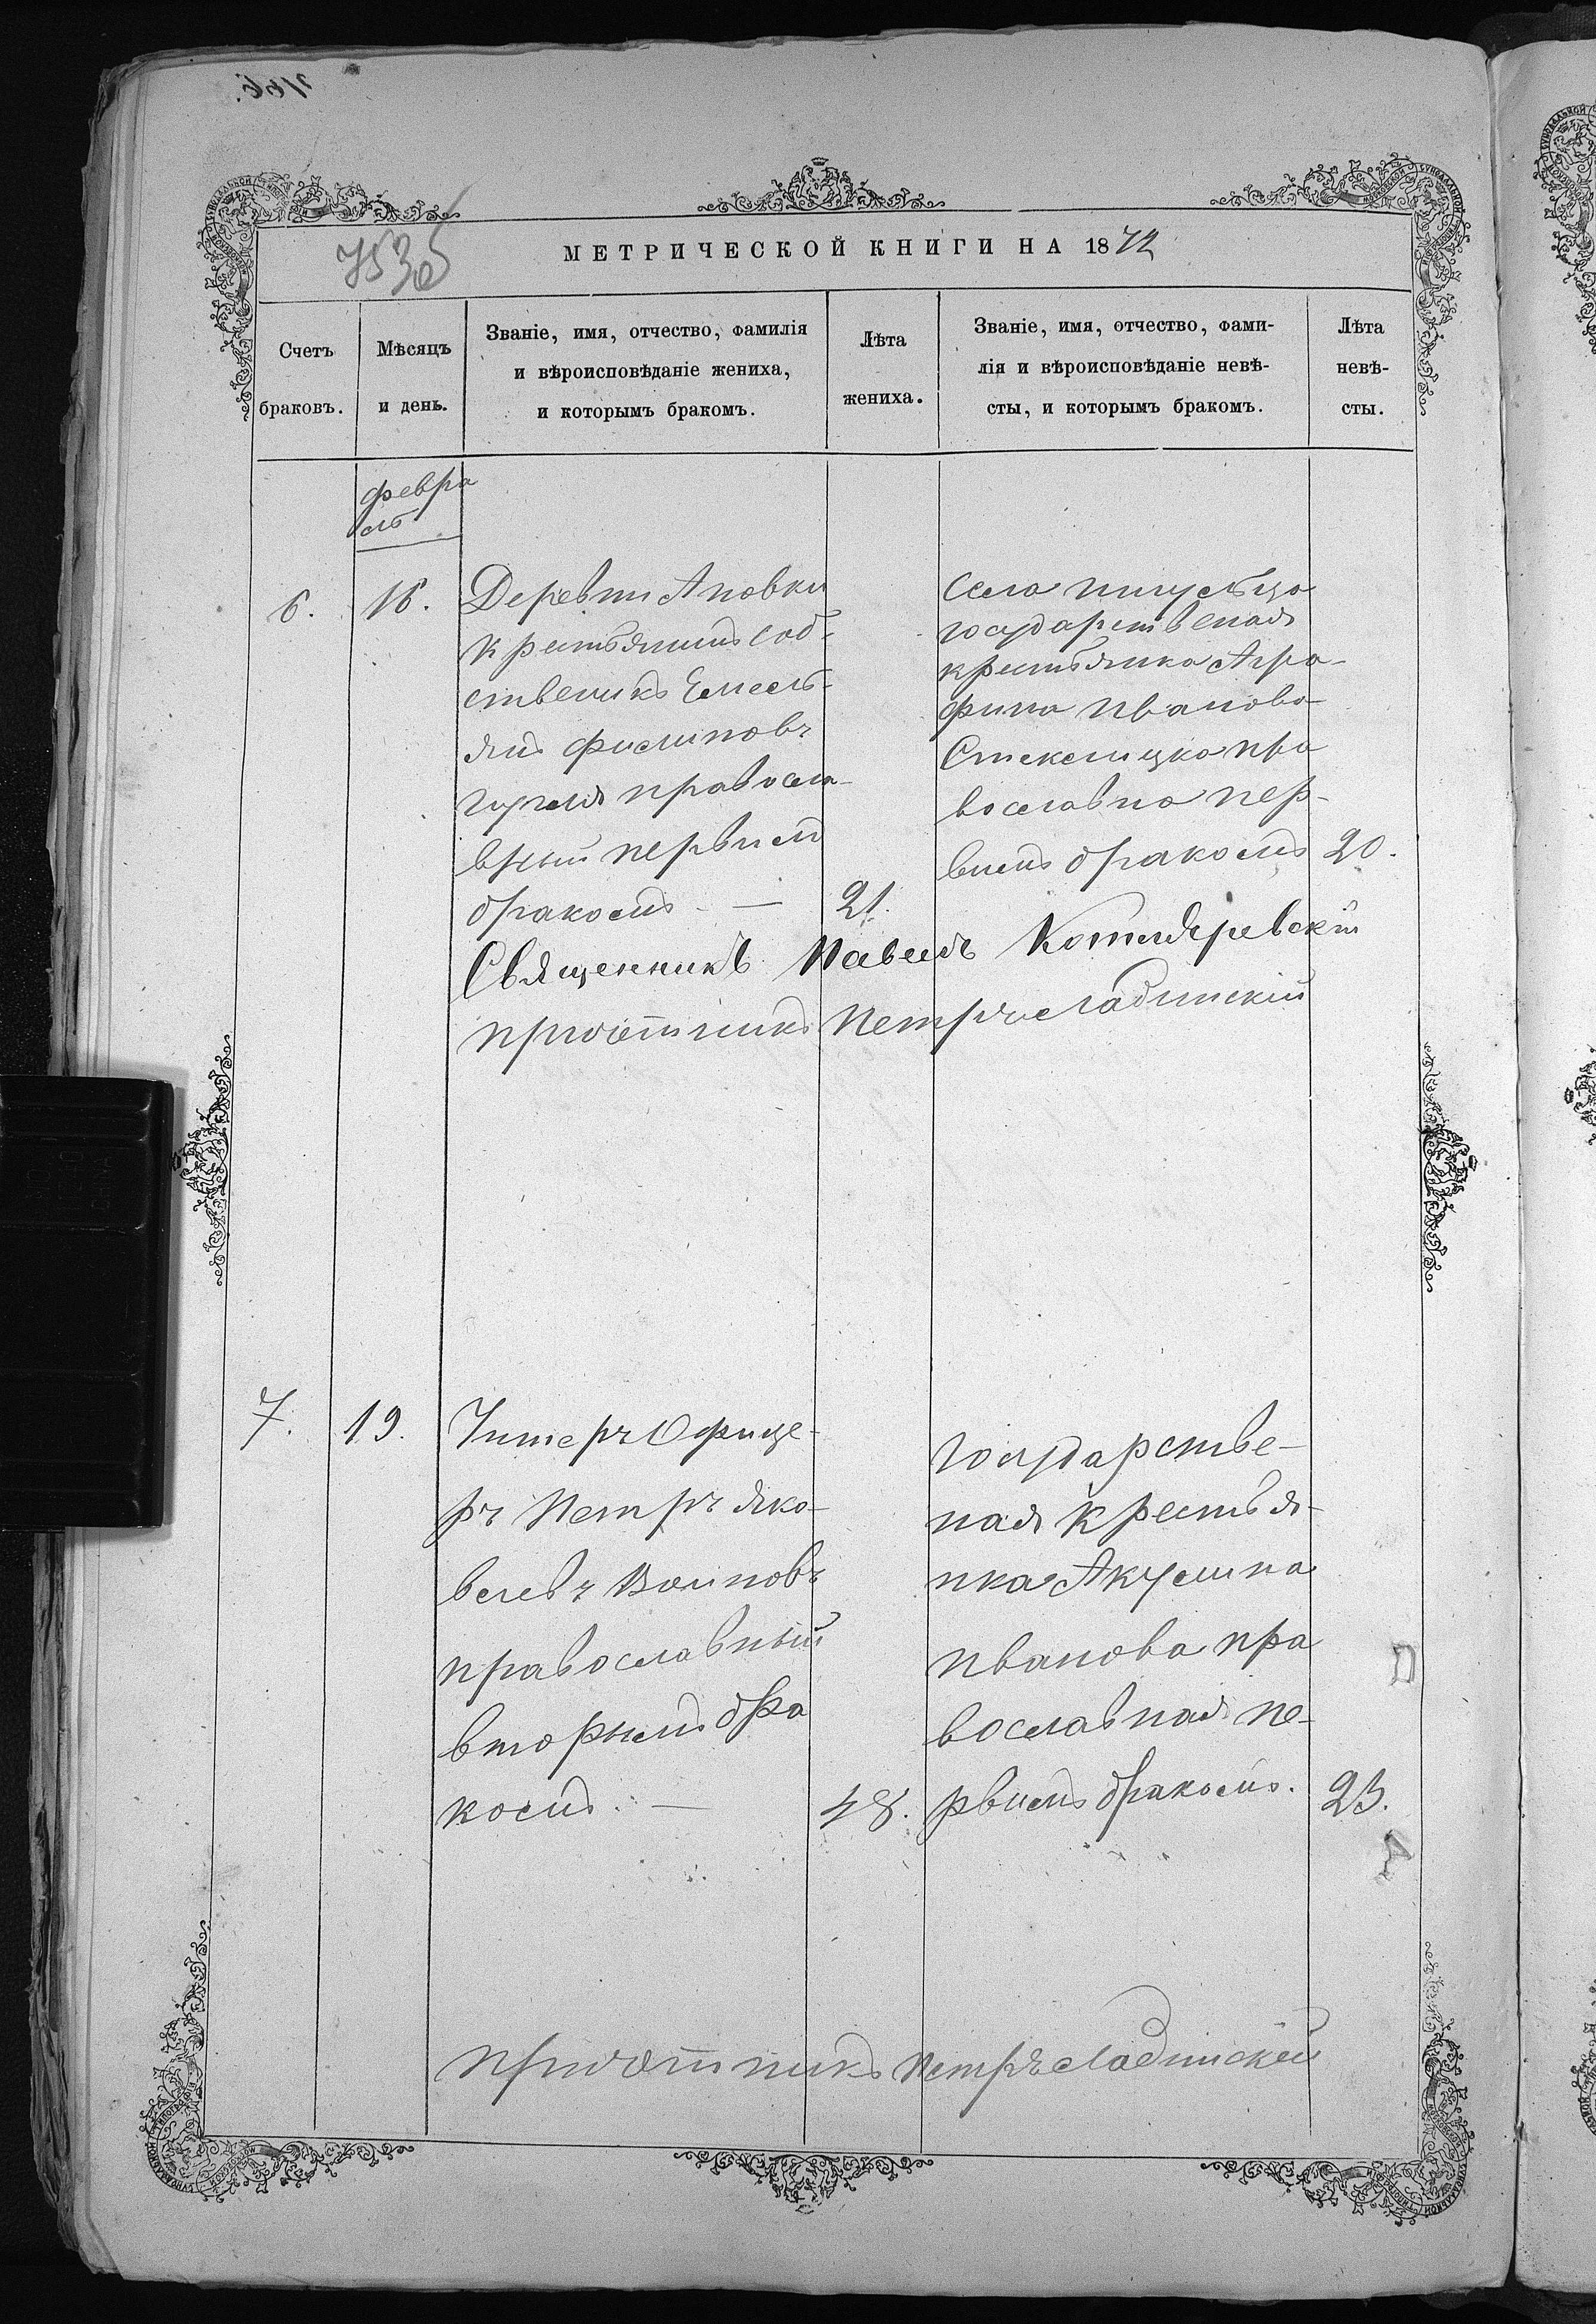 МЕТРИЧЕСКОЙ КНИГИ НА 1872
Счетъ
браковъ.
Мѣсяцъ
и день.
Званіе, имя, отчество, фамилія
и вѣроисповѣданіе жениха,
и которымъ бракомъ.
Лѣта
жениха.
Званіе, имя, отчество, фами-
лія и вѣроисповѣданіе невѣ-
сты, и которымъ бракомъ.
Лѣта
невѣ-
сты.
февра
ль
6.
16.
Деревни Ановки
крестьянинъ соб-
ственикъ Емель-
янъ Филиповъ
православ-
вный первымъ
бракомъ —
21.
Села
государственая
крестьянка Агра-
фина Иванова
пра
вославна пер-
вимъ бракомъ
20.
Священникъ Павелъ Котляревскій
причотникъ Петръ Ладинскій
7.
19.
Унтеръ Офице-
ръ Петръ Яко-
влевъ Воиновъ
православный
вторымъ бра
комъ. —
48.
государстве-
ная крестья-
нка Акулина
Иванова пра
вославная пе-
рвимъ бракомъ.
23.
причотникъ Петръ Ладинскій